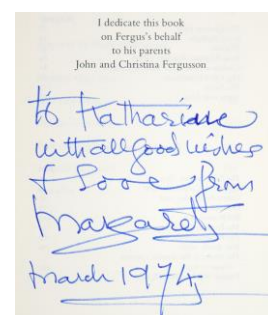 I dedicate this book
on Fergus's behalf
to his parents
John and Christina Fergusson
to Katharine
with all good wishes
& Love from
Margaret
March 1974